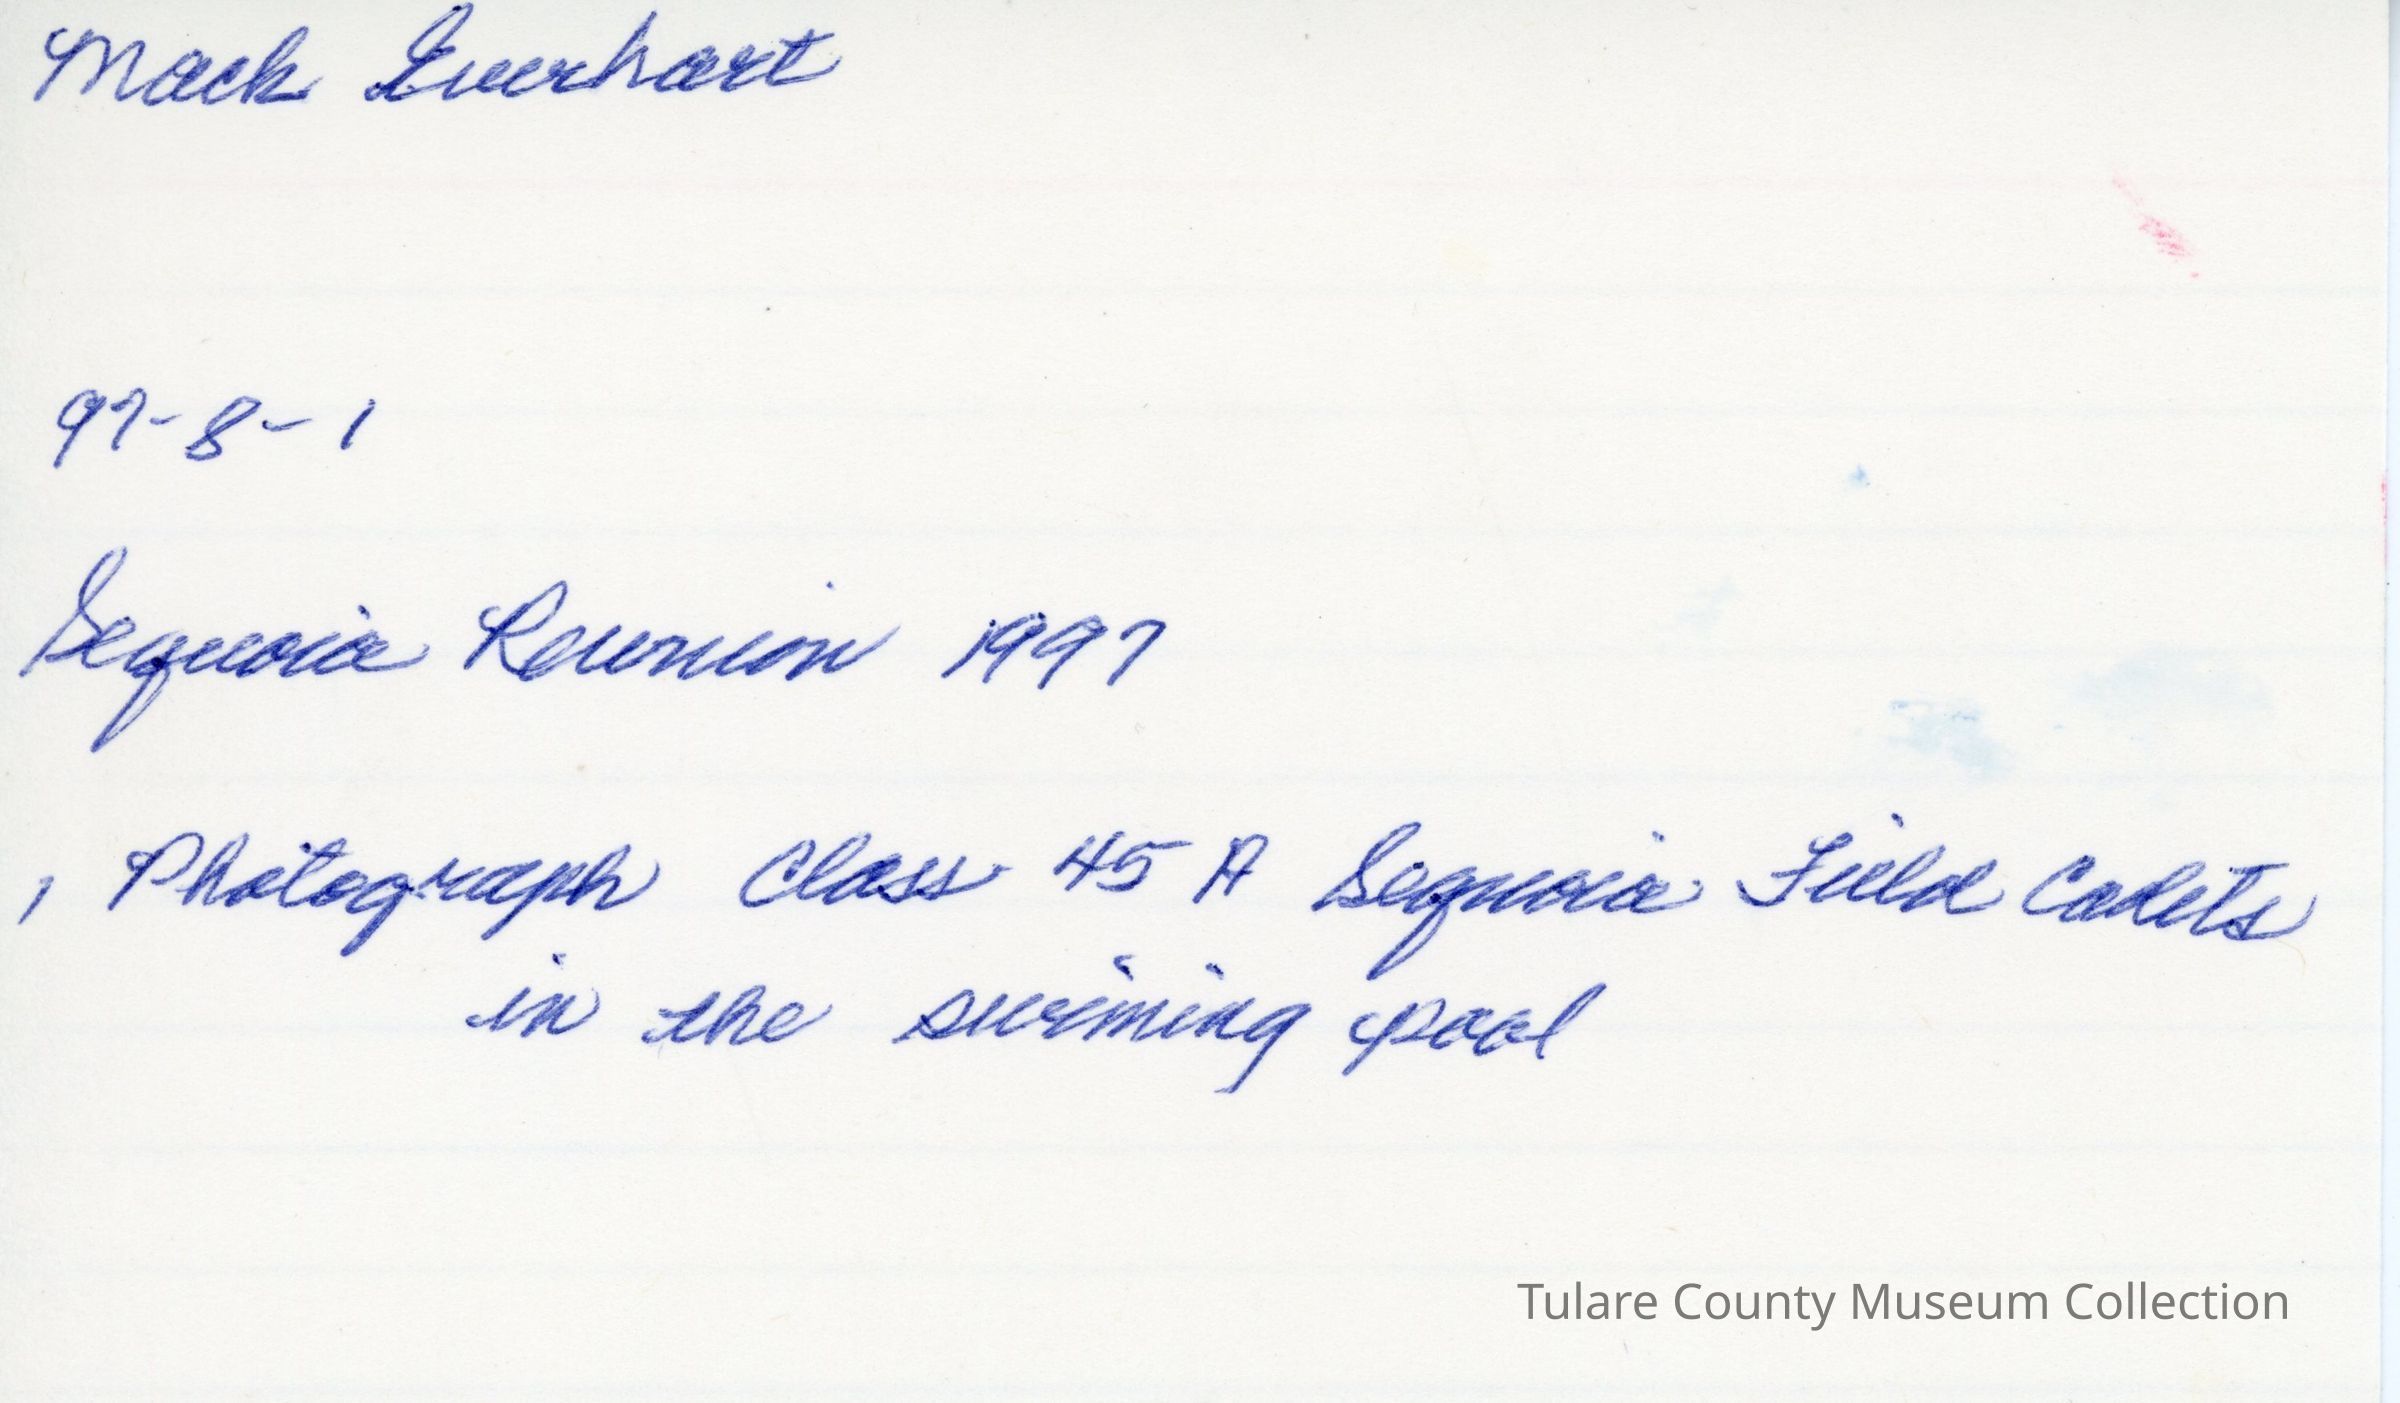 Mack Everhart
97-8-1
Sequoia Reunion 1997
1 Photograph Class 45 A Sequoia Field Cadets
in the swiming pool
Tulare County Museum Collection